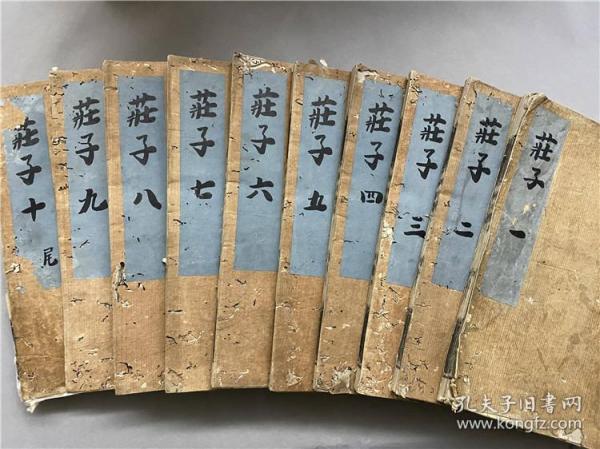 莊子 一
莊子 二
莊子 三
莊子 四
莊子 五
莊子 六
莊子 七
莊子 八
莊子 九
莊子 十 尾
孔夫子旧書网
www.kongfz.com